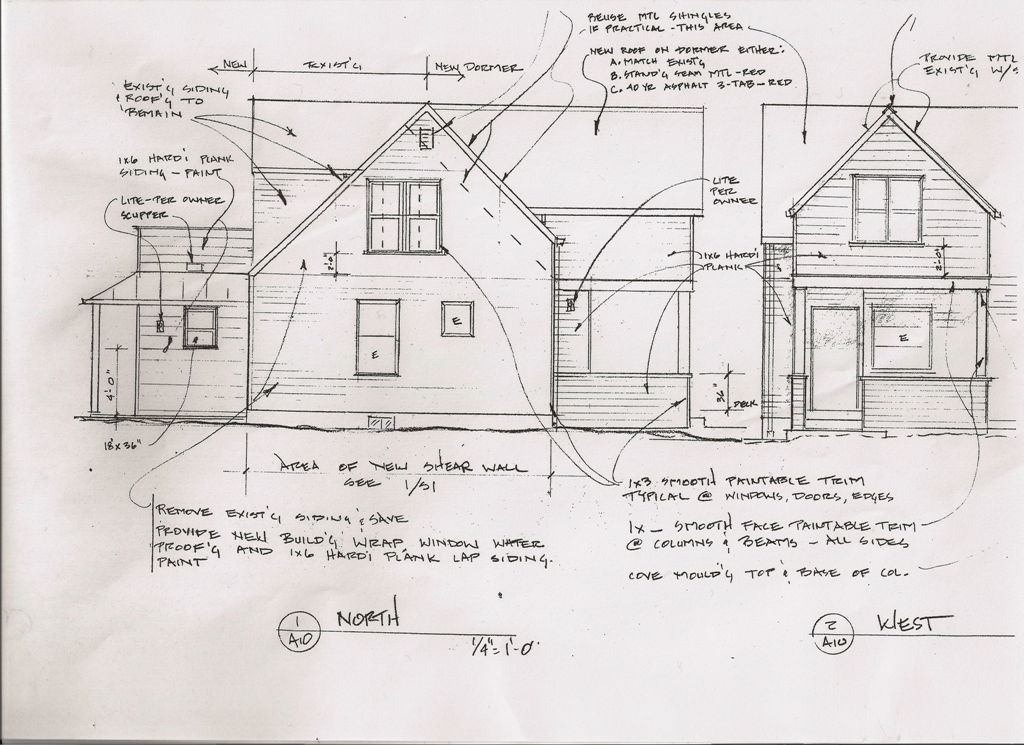 REUSE MTL SHINGLES
IF PRACTICAL - THIS AREA
NEW
EXIST'G
NEW DORMER
NEW ROOF ON DORMER EITHER:
A. MATCH EXIST'G
B. STAND'G SEAM MTL - RED
C. 40 YR ASPHALT 3-TAB - RED
PROVIDE MTL
EXIST'G W/
EXIST'G SIDING
& ROOF'G TO
REMAIN
1x6 HARDI PLANK
SIDING - PAINT
LITE - PER OWNER
SCUPPER
LITE
PER
OWNER
2'-0"
1x6 HARDI
PLANK
2'-0"
E
E
E
4'-0"
36"
DECK
18x36"
AREA OF NEW SHEAR WALL
SEE 1/S1
1x3 SMOOTH PAINTABLE TRIM
TYPICAL @ WINDOWS, DOORS, EDGES
REMOVE EXIST'G SIDING & SAVE
PROVIDE NEW BUILD'G WRAP WINDOW WATER
PROOF'G AND 1x6 HARDI PLANK LAP SIDING.
PAINT
1x_ SMOOTH FACE PAINTABLE TRIM
@ COLUMNS & BEAMS - ALL SIDES
COVE MOULD'G TOP & BASE OF COL.
1
A10
NORTH
1/4"=1'-0"
2
A10
WEST